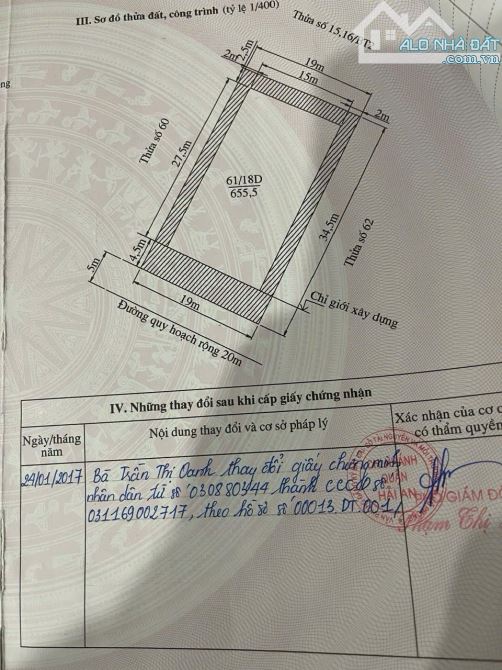 III. Sơ đồ thửa đất, công trình (tỷ lệ 1/400)
Thửa số 15,16/
ALO NHÀ ĐẤT
.com.vn
2,5m
2m
19m
15m
2m
Thửa số 60
27,5m
61/18D
655,5
34,5m
Thửa số 62
4,5m
5m
19m
Chỉ giới xây dựng
Đường quy hoạch rộng 20m
IV. Những thay đổi sau khi cấp giấy chứng nhận
Ngày/tháng
năm
Nội dung thay đổi và cơ sở pháp lý
Xác nhận của cơ
có thẩm quyền
24/01/2017
Bà Trần Thị Oanh thay đổi giấy chứng minh
nhân dân từ số 030880344 thành CCCD số
031169002717, theo hồ sơ số 00013.DT.001
QUẬN
HẢI AN
GIÁM ĐỐ
Phạm Thị